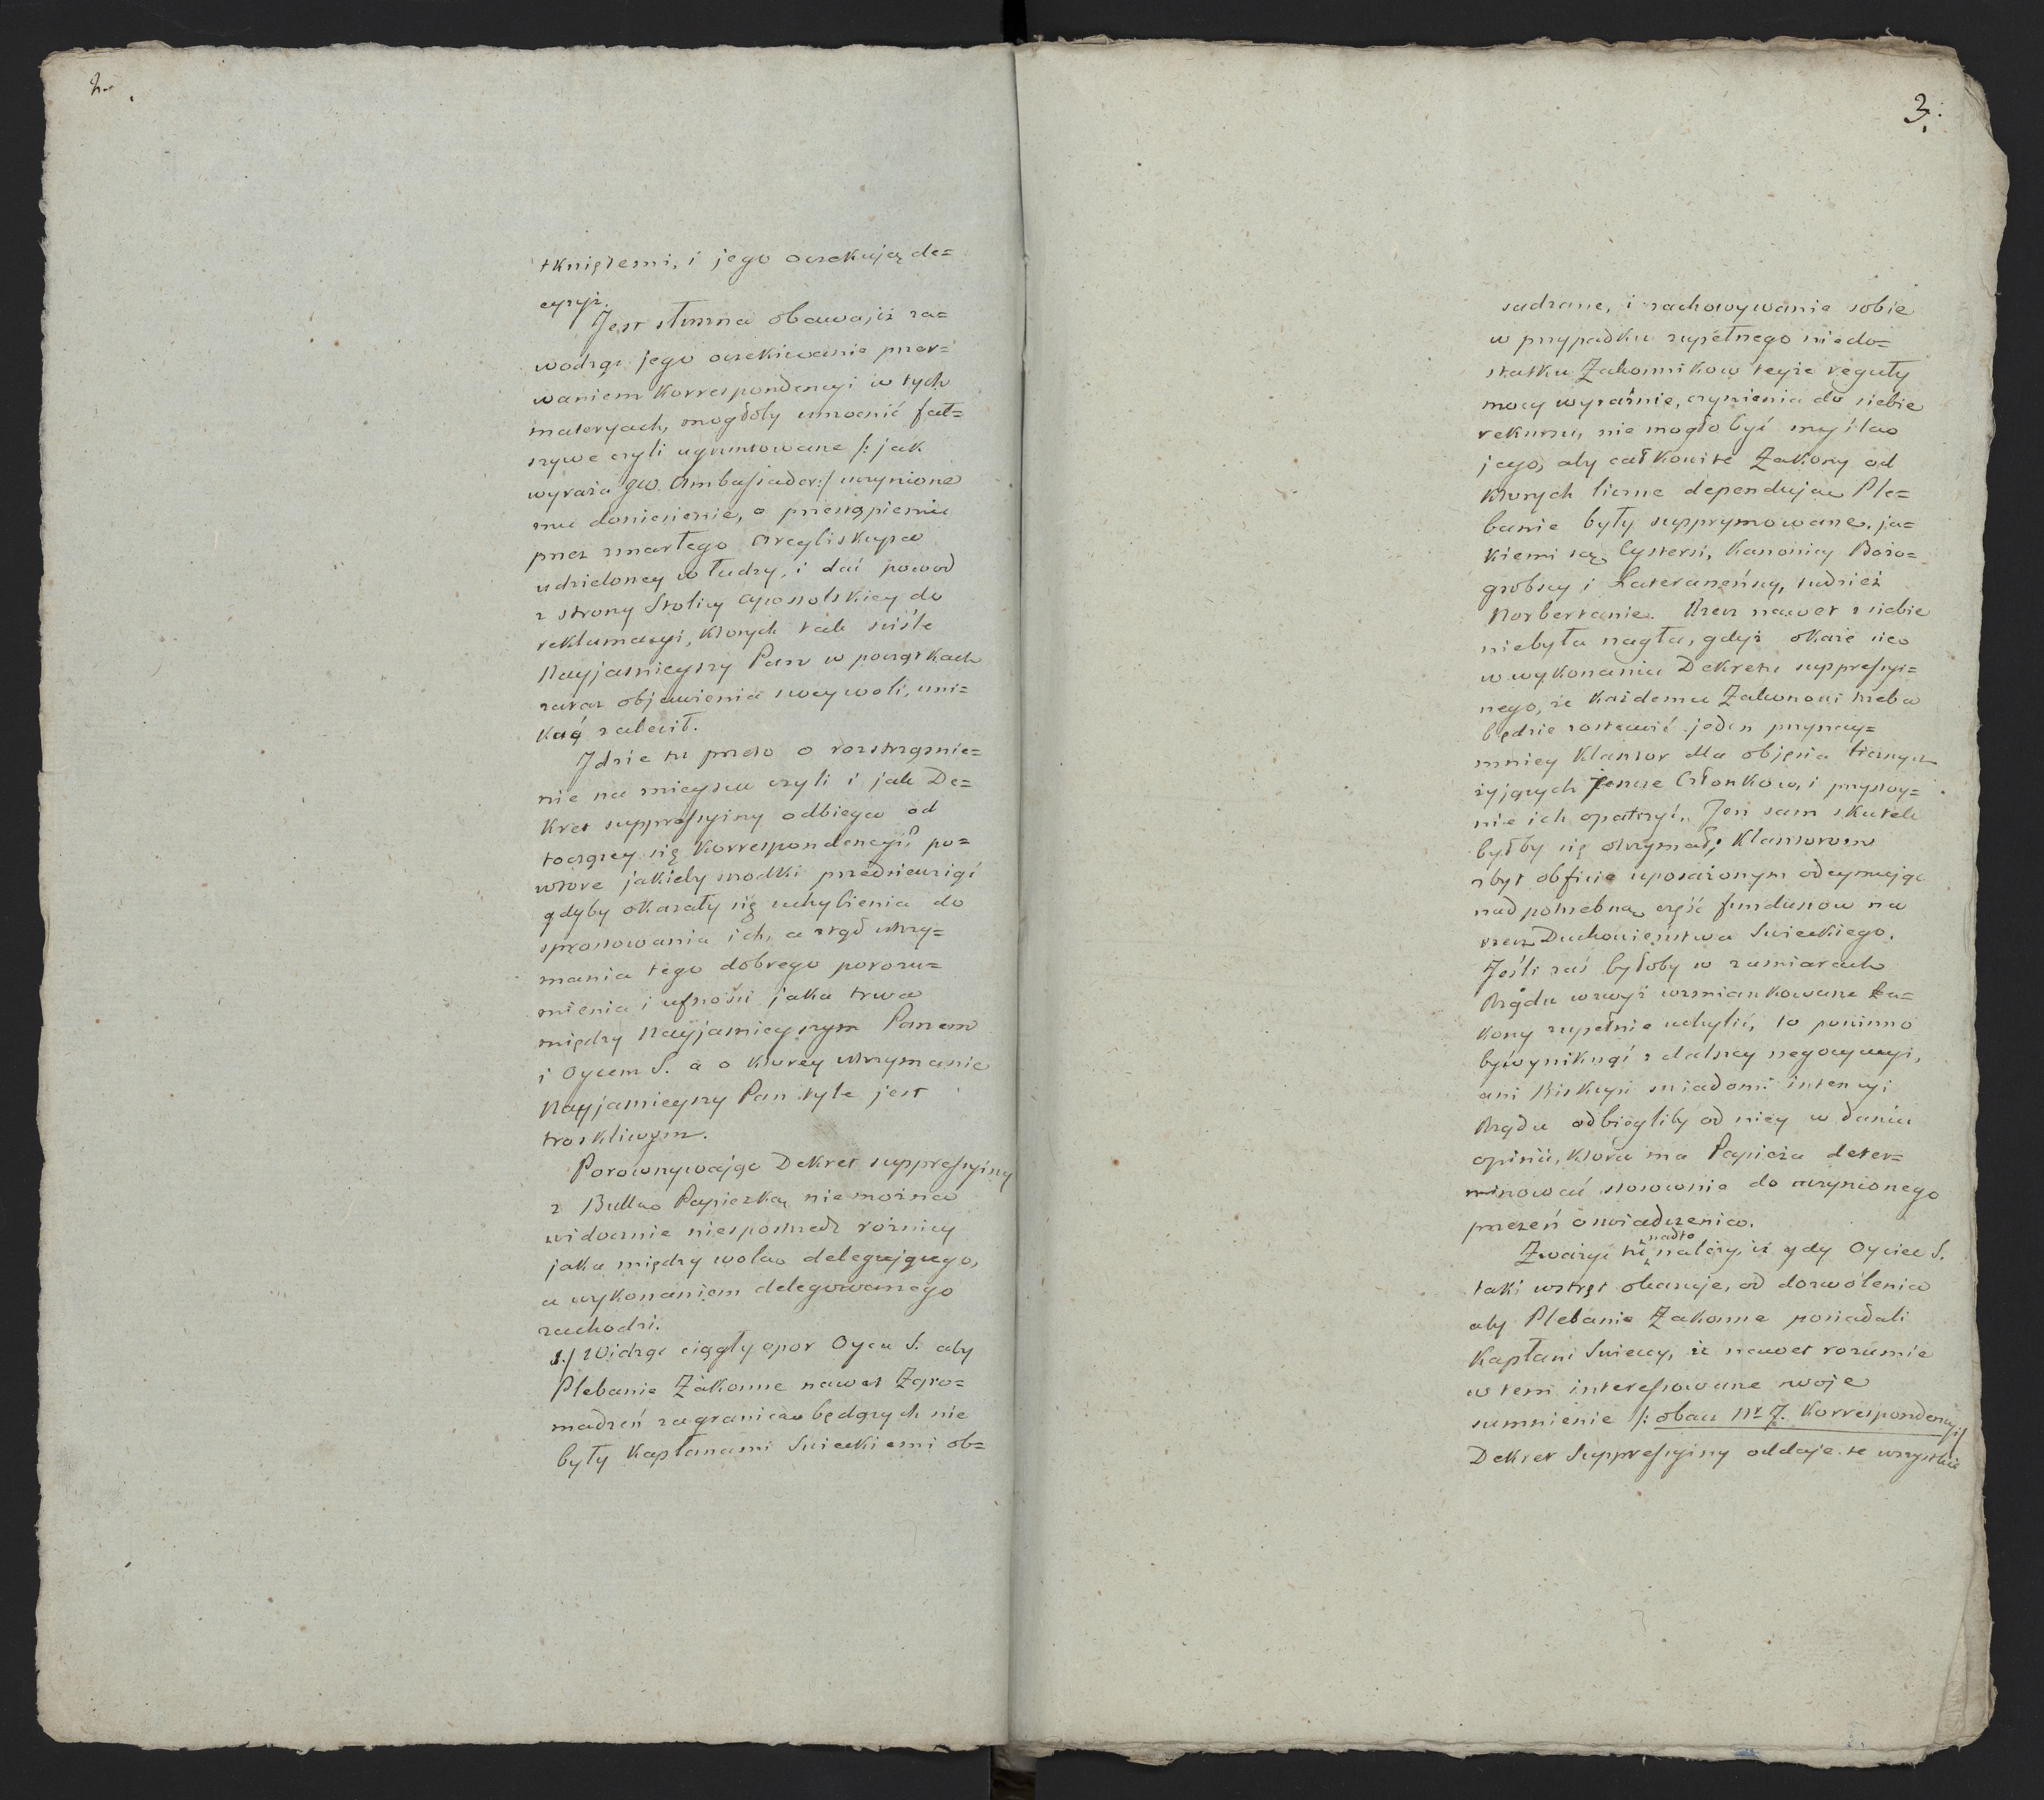 2.
tkniętemi, i jego oczekują de=
cyzyi.
Jest słuszna obawa, iż za=
wodząc jego oczekiwanie przer=
waniem Korrespondencyi w tych
materyach, mogłoby umocnić fał=
szywe czyli ugruntowane /: jak
wyraża gw. Ambassador :/ uczynione
mu doniesienie, o przestąpieniu
przez zmarłego Arcybiskupa
udzieloney władzy, i dać powod
z strony Stolicy Apostolskiey do
reklamacyi, ktorych tak ściśle
Nayjasnieyszy Pan w początkach
zaraz objawienia swey woli, uni=
kać zalecił.
Jdzie tu przeto o rozstrzągnie=
nie na mieyscu czyli i jak De=
kret suppressyiny odbiega od
toczącey się Korrespondencyi? po=
wtore jakieby srodki przedsiewziąć
gdyby okazały się uchybienia do
sprostowania ich, a ztąd utrzy=
mania tego dobrego porozu=
mienia i ufności jaka trwa
między Nayjasnieyszym Panem
i Oycem S. a o ktorey utrzymanie
Nayjasnieyszy Pan tyle jest
troskliwym.
Porownywając Dekret suppressyiny
z Bullą Papiezką niemożna
widocznie niespostrzedz rożnicy
jaka między wolą delegującego,
a wykonaniem delegowanego
zachodzi.
1./ Widząc ciągły opor Oyca S. aby
Plebanie Zakonne nawet Zgro=
madzeń zagranicą będących nie
były Kapłanami Swieckiemi ob=
3.
sadzane, i zachowywanie sobie
w przypadku zupełnego niedo=
statku Zakonnikow teyże reguły
mocy wyraźnie, czynienia do siebie
rekursu, nie mogło być myślą
jego, aby całkowite Zakony od
ktorych liczne dependują Ple=
banie były supprymowane, ja=
kiemi są Cystersi, Kanonicy Bożo=
grobscy i Lateraneńscy, tudzież
Norbertanie. Rzecz nawet z siebie
niebyła nagła, gdyż okaże się
w wykonaniu Dekretu suppressyi=
nego, że każdemu Zakonowi trzeba
będzie zostawić jeden przynay=
mniey Klasztor dla objęcia licznych
żyjących jeszcze Członkow, i przyzwoy=
nie ich opatrzyć. Ten sam skutek
byłby się otrzymał, Klasztorom
zbyt obficie uposażonym odeymując
nad potrzebną część funduszow na
rzecz Duchowieństwa Swieckiego.
Jeśli zaś byłoby w zamiarach
Rządu wzwyż wzmiankowane Za=
kony zupełnie uchylić, to powinno
było wyniknąć z dalszey negocyacyi,
ani Biskupi swiadomi intencyi
Rządu odbiegliby od niey w daniu
opinii, ktora ma Papieża deter=
minować stosownie do uczynionego
przezeń oswiadczenia.
Zważyć tu nadto należy, iż gdy Oyciec S.
taki wstręt okazuje, od dozwolenia
aby Plebanie Zakonne posiadali
Kapłani Swieccy, iż nawet rozumie
w tem interessowane swoje
sumnienie /: obacz Nr 7. Korrespondencyi :/
Dekret Suppressyiny oddaje te wszystkie